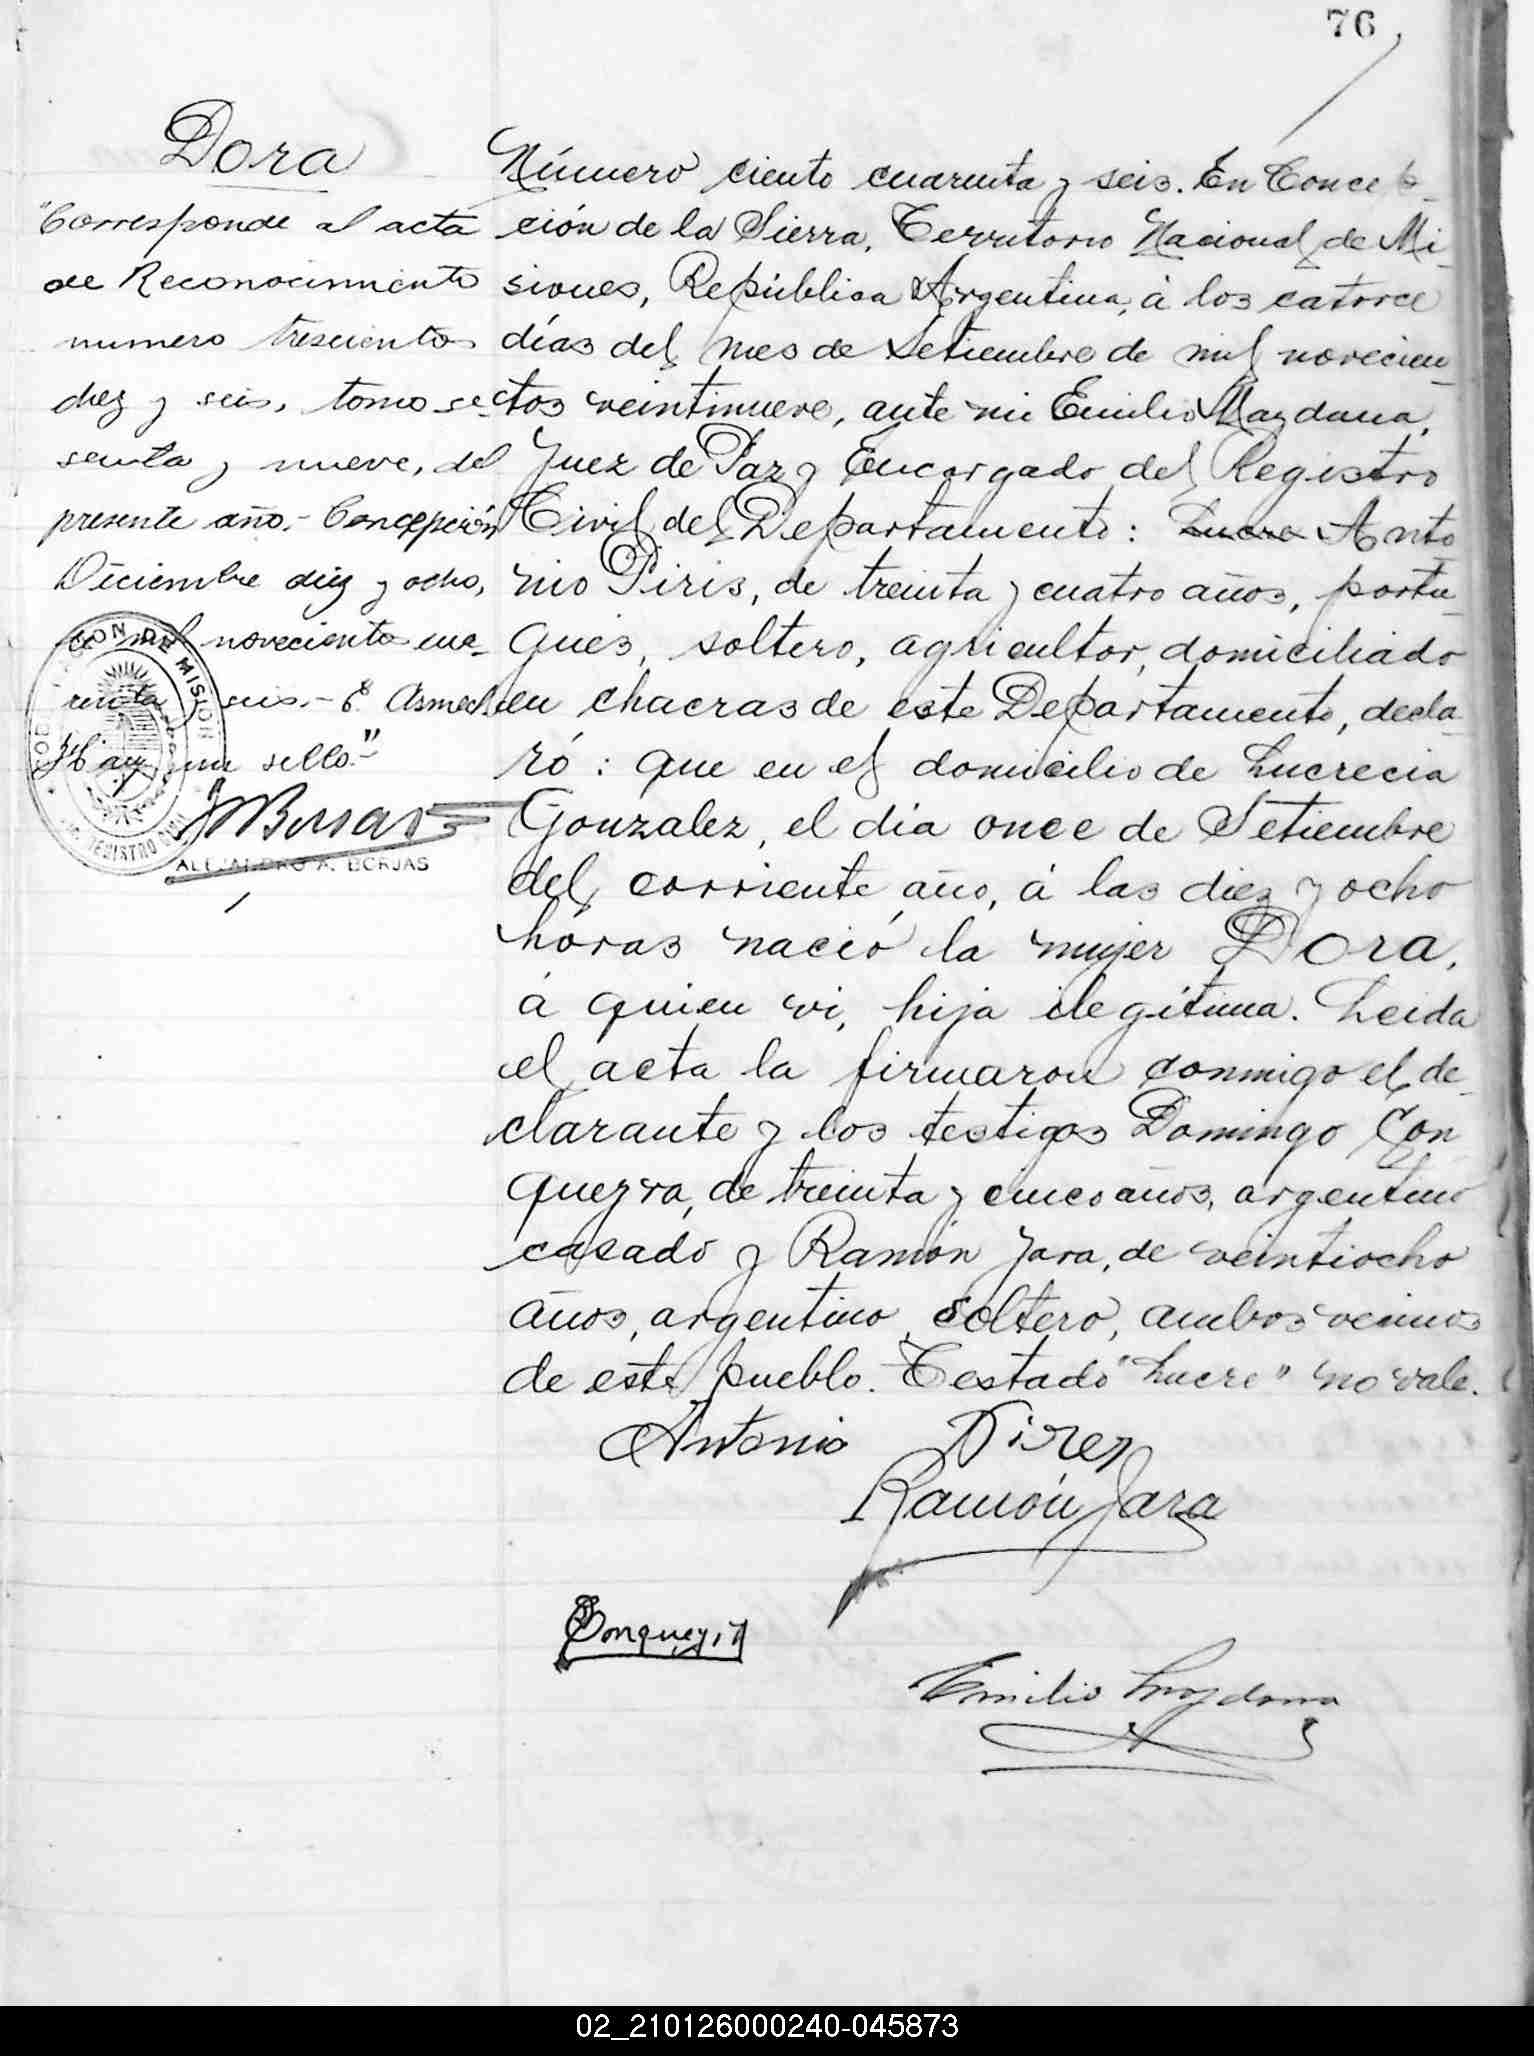 76
Dora
"Corresponde al acta
de Reconocimiento
numero trescientos
diez y seis, tomo se-
senta y nueve, del
presente año.- Concepción
Diciembre diez y ocho,
de mil novecientos cua-
renta y seis.- E. Asmech
Hay un sello."
ALEJANDRO A. BORJAS
Número ciento cuarenta y seis. En Concep-
ción de la Sierra, Territorio Nacional de Mi-
siones, República Argentina, á los catorce
días del mes de Setiembre de mil novecien-
tos veintinueve, ante mi Emilio Maydana,
Juez de Paz y Encargado del Registro
Civil del Departamento: Lucre Anto-
nio Piris, de treinta y cuatro años, portu-
gués, soltero, agricultor, domiciliado
en chacras de este Departamento, decla-
ró: que en el domicilio de Lucrecia
Gonzalez, el día once de Setiembre
del corriente año, á las diez y ocho
hóras nació la mujer Dora,
á quien vi, hija ilegítima. Leida
el acta la firmaron conmigo el de-
clarante y los testigos Domingo Con
queyra, de treinta y cinco años, argentino
casado y Ramón Jara, de veintiocho
años, argentino, soltero, ambos vecinos
de este pueblo. Testado "Lucre" no vale.
Antonio Pires
Ramón Jara
Emilio Maydana
02_210126000240-045873